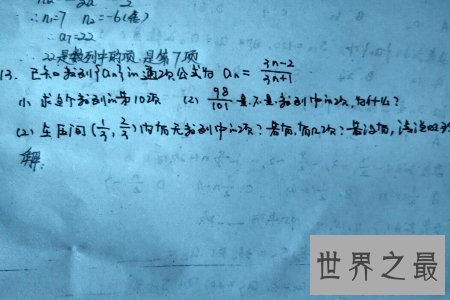 ∴n₁=7 n₂=-6(舍)
∴a₇=22
∴22是数列中的项.是第7项
13. 已知数列{an}的通项公式为 an= 3n-2/3n+1
(1) 求这个数列的第10项 (2) 98/101 是不是数列中的项,为什么?
(2) 在区间(1/3, 2/3)内有无数列中的项?若有,有几项?若没有,请说明
解:
世界之最